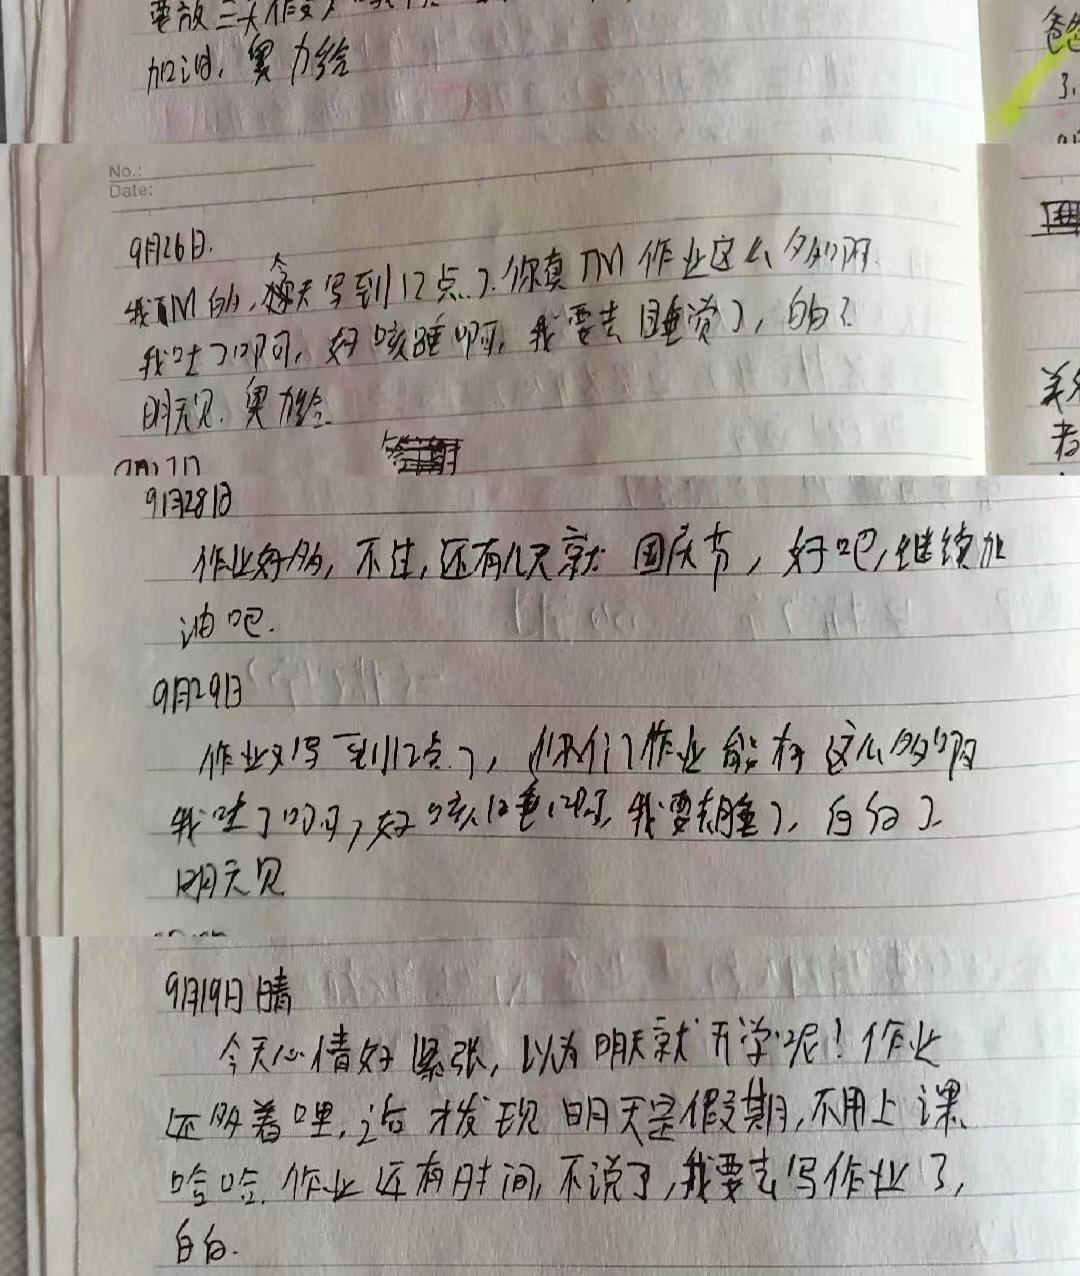 要放三天假
加油，奥力给
No.:
Date:
9月26日.
我TM的，今天写到12点了.你真TM作业这么多的啊
我吐了啊，好咳睡啊，我要去睡觉了，白白了
明天见.奥力给
9月28日
作业好多，不过，还有几天就国庆节，好吧，继续加
油吧.
9月29日
作业又写到12点了，你们作业能有这么多的啊
我吐了啊，好咳睡啊，我要去睡了，白白了
明天见
9月19日 晴
今天心情好紧张，以为明天就开学呢！作业
还多着哩，之后才发现明天是假期，不用上课
哈哈.作业还有时间，不说了，我要去写作业了，
白白.